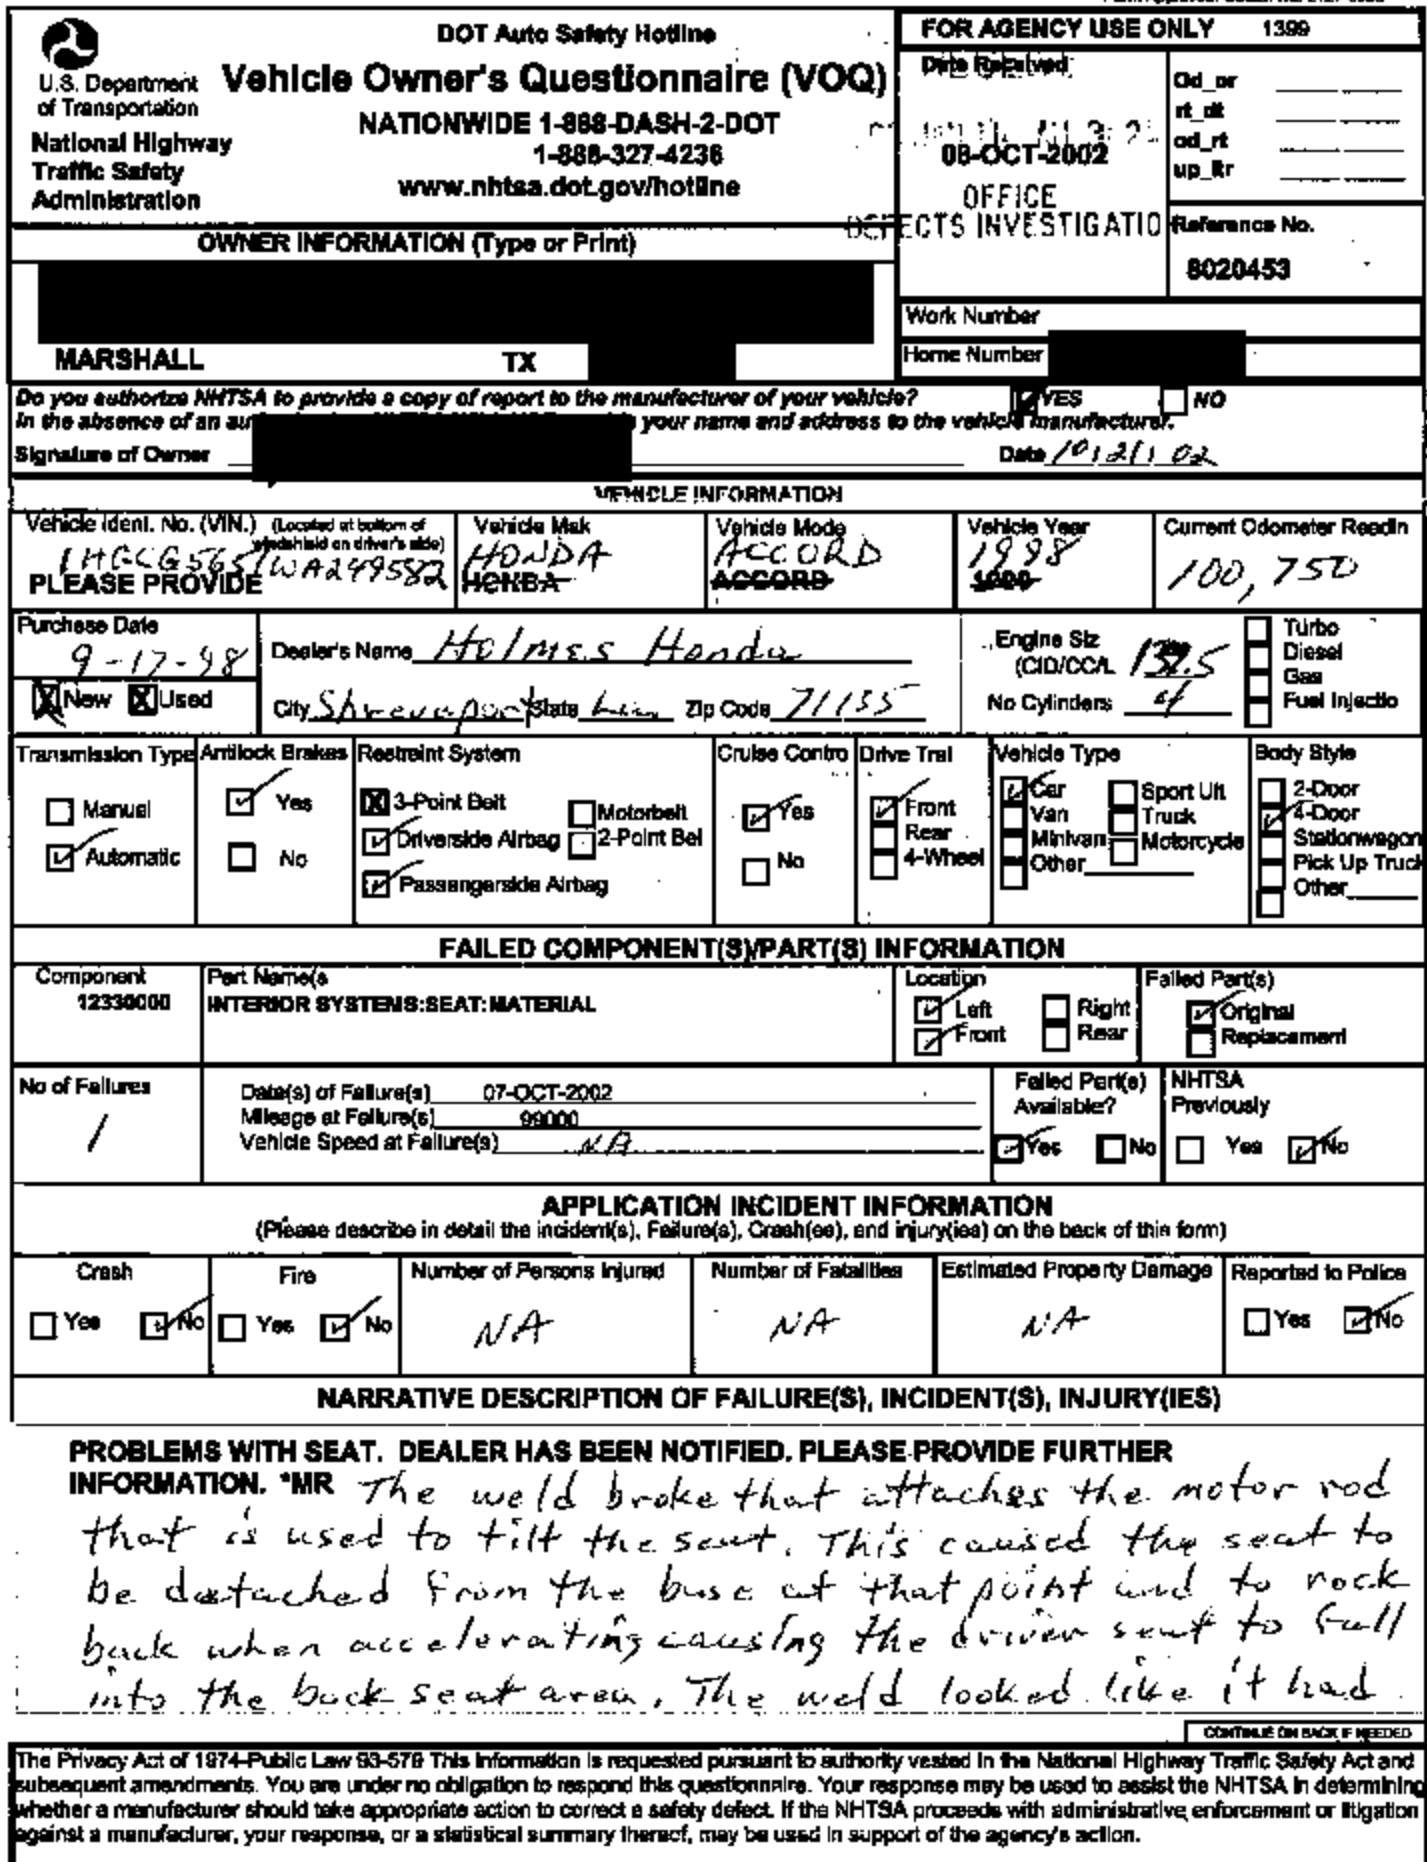 DOT Auto Safety Hotline
U.S. Department
of Transportation
National Highway
Traffic Safety
Administration
Vehicle Owner's Questionnaire (VOQ)
NATIONWIDE 1-888-DASH-2-DOT
1-888-327-4236
www.nhtsa.dot.gov/hotline
FOR AGENCY USE ONLY 1399
Date Received
08-OCT-2002
OFFICE
DEFECTS INVESTIGATIO
Od_or
rt_dt
od_rt
up_ltr
Reference No.
8020453
OWNER INFORMATION (Type or Print)
MARSHALL TX
Work Number
Home Number
Do you authorize NHTSA to provide a copy of report to the manufacturer of your vehicle? YES NO
In the absence of an your name and address to the vehicle manufacturer.
Signature of Owner Date 10/21/02
VEHICLE INFORMATION
Vehicle Ident. No. (VIN.) (Located at bottom of
windshield on driver's side)
1HGCG5651WA249582
PLEASE PROVIDE
Vehicle Mak
HONDA
HONDA
Vehicle Mode
ACCORD
ACCORD
Vehicle Year
1998
Current Odometer Readin
100,750
Purchase Date
9-17-98
New Used
Dealer's Name Holmes Honda
City Shreveport State Zip Code 71135
Engine Siz
(CID/CC/L
No Cylinders 4
Turbo
Diesel
Gas
Fuel Injectio
Transmission Type
Manual
Automatic
Antilock Brakes
Yes
No
Restraint System
3-Point Belt
Motorbelt
Driverside Airbag
2-Point Bel
Passengerside Airbag
Cruise Contro
Yes
No
Drive Trai
Front
Rear
4-Wheel
Vehicle Type
Car
Van
Minivan
Other
Sport Utl
Truck
Motorcycle
Body Style
2-Door
4-Door
Stationwagon
Pick Up Truck
Other
FAILED COMPONENT(S)/PART(S) INFORMATION
Component
12330000
Part Name(s
INTERIOR SYSTEMS:SEAT:MATERIAL
Location
Left Right
Front Rear
Failed Part(s)
Original
Replacement
No of Failures
1
Date(s) of Failure(s) 07-OCT-2002
Mileage at Failure(s) 99000
Vehicle Speed at Failure(s) NA
Failed Part(s)
Available?
Yes No
NHTSA
Previously
Yes No
APPLICATION INCIDENT INFORMATION
(Please describe in detail the incident(s), Failure(s), Crash(es), and injury(ies) on the back of this form)
Crash
Yes No
Fire
Yes No
Number of Persons Injured
NA
Number of Fatalities
NA
Estimated Property Damage
NA
Reported to Police
Yes No
NARRATIVE DESCRIPTION OF FAILURE(S), INCIDENT(S), INJURY(IES)
PROBLEMS WITH SEAT. DEALER HAS BEEN NOTIFIED. PLEASE PROVIDE FURTHER
INFORMATION. *MR The weld broke that attaches the motor rod
that is used to tilt the seat. This caused the seat to
be detached from the base at that point and to rock
back when accelerating causing the driver seat to fall
into the back seat area. The weld looked like it had
CONTINUE ON BACK IF NEEDED
The Privacy Act of 1974-Public Law 93-579 This information is requested pursuant to authority vested in the National Highway Traffic Safety Act and
subsequent amendments. You are under no obligation to respond this questionnaire. Your response may be used to assist the NHTSA in determining
whether a manufacturer should take appropriate action to correct a safety defect. If the NHTSA proceeds with administrative enforcement or litigation
against a manufacturer, your response, or a statistical summary thereof, may be used in support of the agency's action.